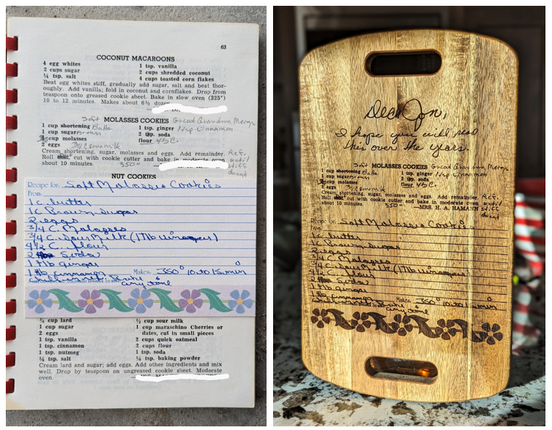 63
COCONUT MACAROONS
4 egg whites 1 tsp. vanilla
2 cups sugar 2 cups shredded coconut
¼ tsp. salt 4 cups toasted corn flakes
Beat egg whites stiff, gradually add sugar, salt and beat thoroughly. Add vanilla; fold in coconut and cornflakes. Drop from
teaspoon onto greased cookie sheet. Bake in slow oven (325°)
18 to 12 minutes. Makes about 6½ dozen
Soft
MOLASSES COOKIES Great Grandma
1 cup shortening 1 tsp. ginger 1 tsp Cinnamon
1 cup sugar 1 tsp. soda
¾ cup molasses flour 4½ C.
2 eggs
Cream shortening, sugar, molasses and eggs. Add remainder.
Roll, cut with cookie cutter and bake in moderate oven
about 10 minutes. 350°
NUT COOKIES
Recipe for Soft Molasses Cookies
1 C butter
1 C Brown sugar
2 eggs
3/4 C. Molasses
3/4 C. Sour Milk (1 Tb vinegar)
4½ C. flour
2 Soda
1 Tb ginger
1 Tb cinnamon Makes 350° 10 to 15 min
any time
¾ cup lard ½ cup sour milk
1 cup sugar 1 cup maraschino Cherries or
2 eggs dates, cut in small pieces
1 tsp. vanilla 2 cups quick oatmeal
1 tsp. cinnamon 2 cups flour
1 tsp. nutmeg 1 tsp. soda
¼ tsp. salt ¼ tsp. baking powder
Cream lard and sugar; add eggs. Add other ingredients and mix
well. Drop by teaspoon on ungreased cookie sheet. Moderate
oven.
Dear Jon,
I hope you will read
this over the years.
Soft
MOLASSES COOKIES Great Grandma
1 cup shortening 1 tsp. ginger 1 tsp Cinnamon
1 cup sugar 1 tsp. soda
¾ cup molasses flour 4½ C.
2 eggs
Cream shortening, sugar, molasses and eggs. Add remainder.
Roll, cut with cookie cutter and bake in moderate oven
about 10 minutes. 350° —MRS. H. A. HAMANN
Recipe for Soft Molasses Cookies
1 C butter
1 C Brown sugar
2 eggs
3/4 C. Molasses
3/4 C. Sour Milk (1 Tb vinegar)
4½ C. flour
2 Soda
1 Tb ginger
1 Tb cinnamon Makes 350° 10 to 15 min
any time